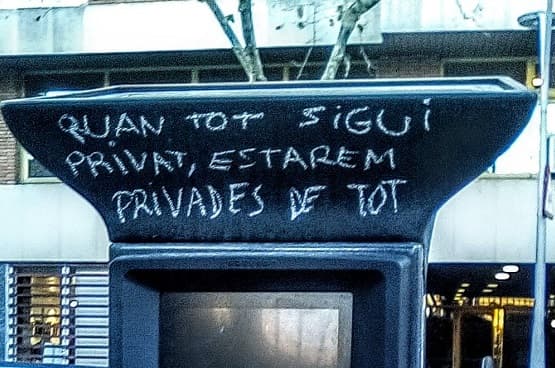 QUAN TOT SiGUi
PRiVAT, ESTAREM
PRiVADES DE TOT